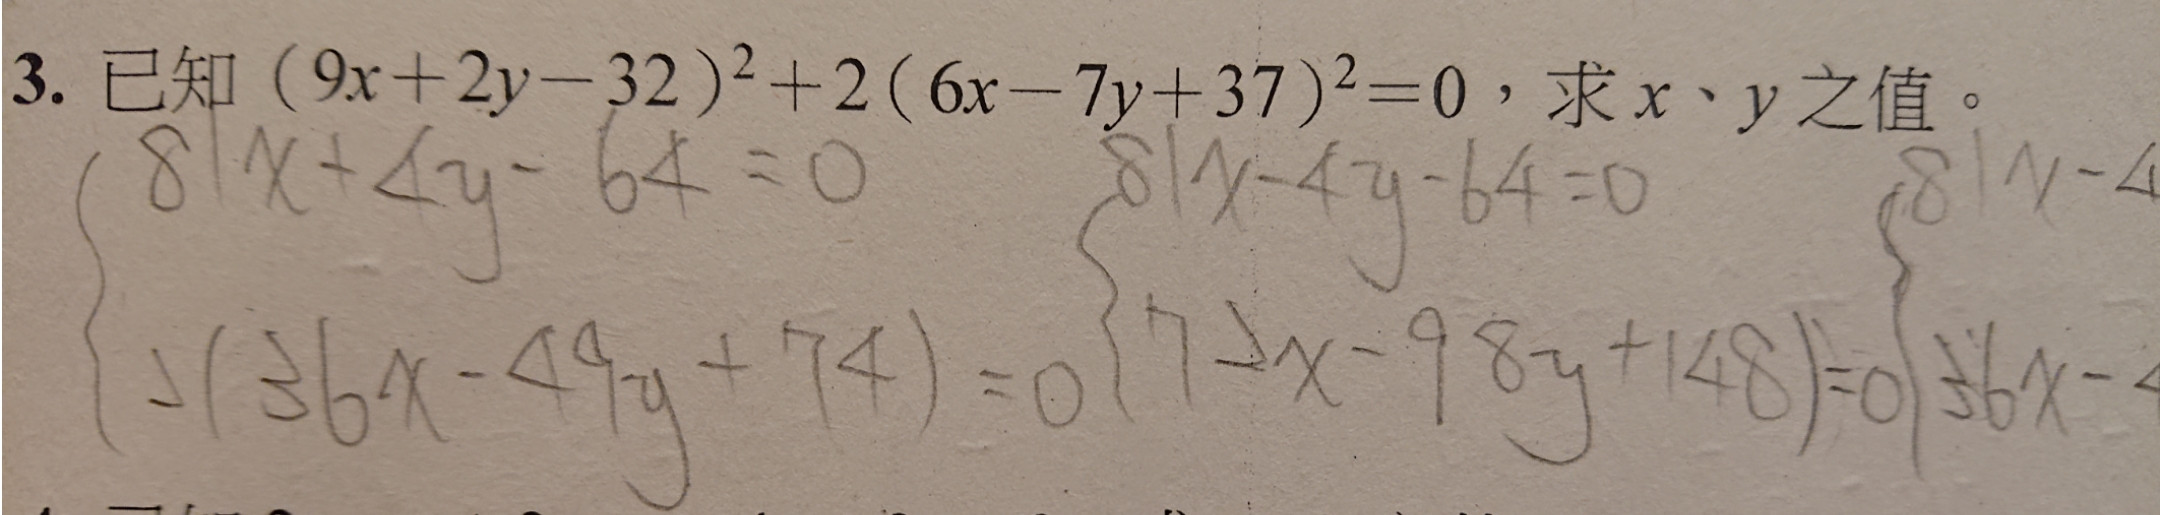 3. 已知(9x+2y-32)²+2(6x-7y+37)²=0,求x、y之值。
81x+4y-64=0 81x-4y-64=0 81x-4
2(36x-49y+74)=0 72x-98y+148)=0 36x-4